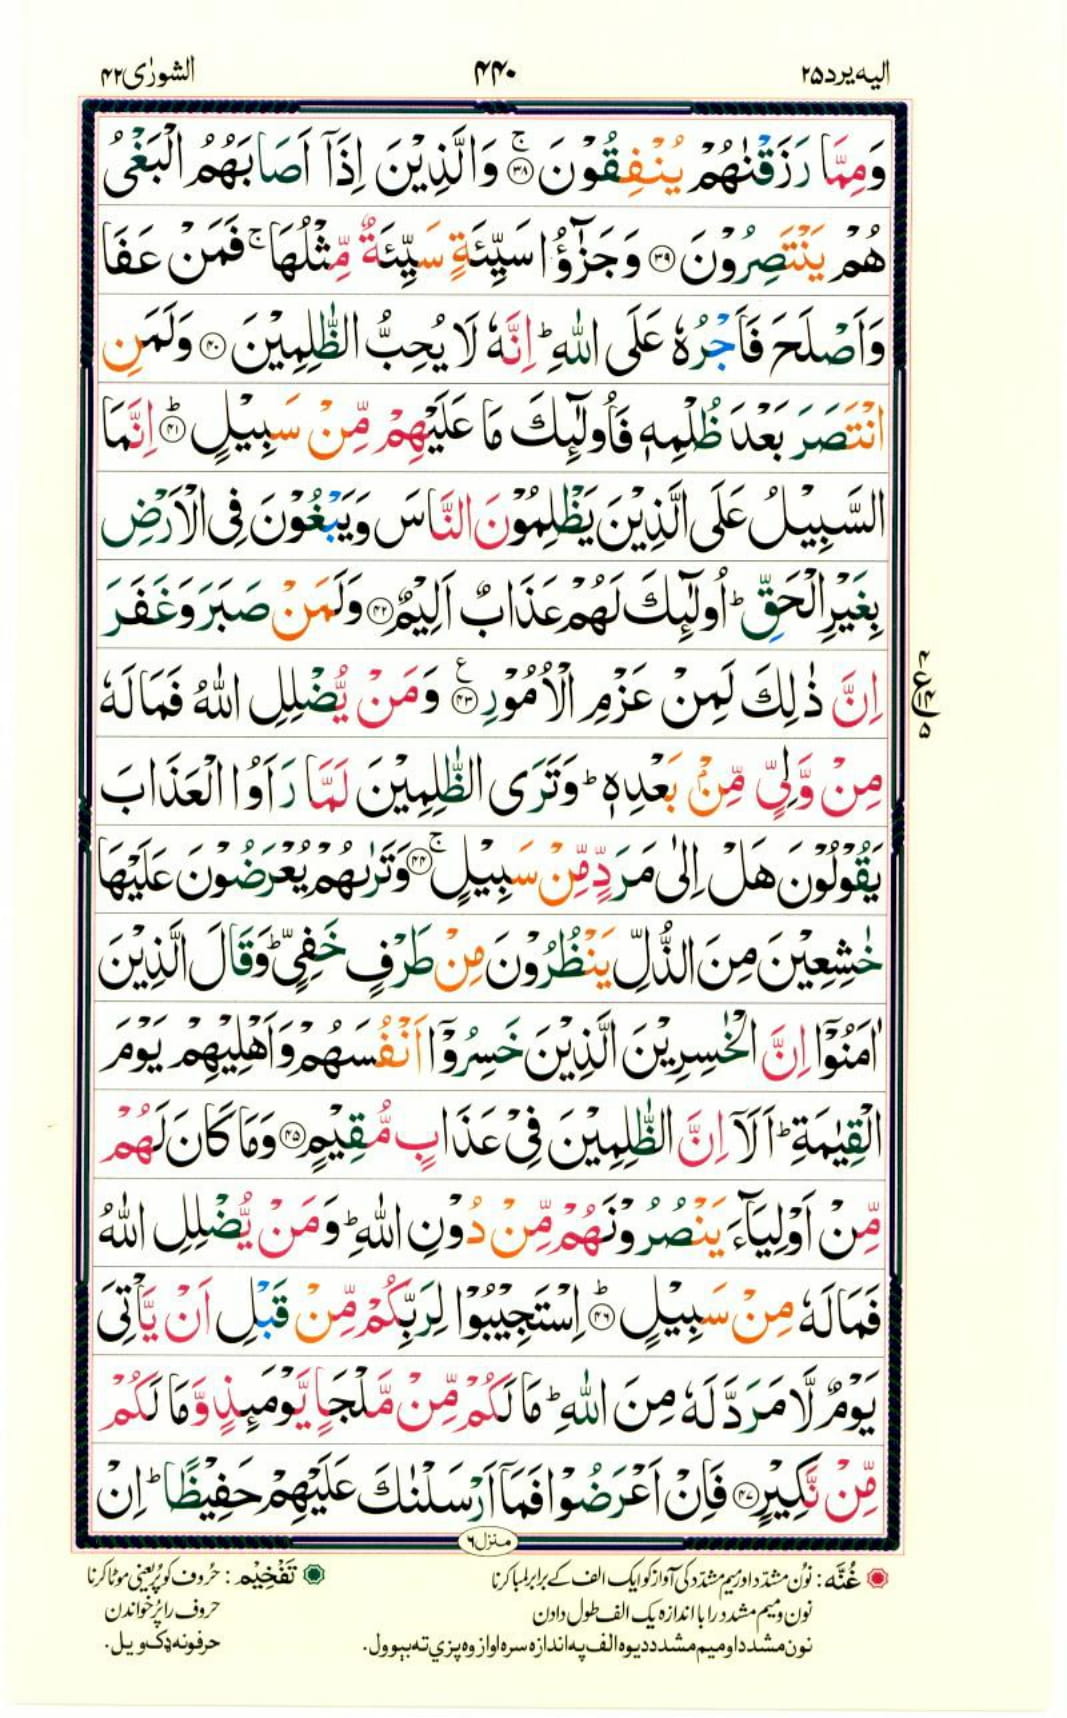 الیه یرد ۲۵
۴۴۰
الشورٰی ۴۲
وَمِمَّا رَزَقْنٰهُمْ يُنْفِقُوْنَ ۚ﴿۳۸﴾ وَالَّذِيْنَ اِذَآ اَصَابَهُمُ الْبَغْيُ
هُمْ يَنْتَصِرُوْنَ ﴿۳۹﴾ وَجَزٰٓؤُا سَيِّئَةٍ سَيِّئَةٌ مِّثْلُهَا ۚ فَمَنْ عَفَا
وَاَصْلَحَ فَاَجْرُهٗ عَلَى اللّٰهِ ؕ اِنَّهٗ لَا يُحِبُّ الظّٰلِمِيْنَ ﴿۴۰﴾ وَلَمَنِ
انْتَصَرَ بَعْدَ ظُلْمِهٖ فَاُولٰٓئِكَ مَا عَلَيْهِمْ مِّنْ سَبِيْلٍ ؕ﴿۴۱﴾ اِنَّمَا
السَّبِيْلُ عَلَى الَّذِيْنَ يَظْلِمُوْنَ النَّاسَ وَيَبْغُوْنَ فِى الْاَرْضِ
بِغَيْرِ الْحَقِّ ؕ اُولٰٓئِكَ لَهُمْ عَذَابٌ اَلِيْمٌ ﴿۴۲﴾ وَلَمَنْ صَبَرَ وَغَفَرَ
اِنَّ ذٰلِكَ لَمِنْ عَزْمِ الْاُمُوْرِ ﴿۴۳﴾ ع وَمَنْ يُّضْلِلِ اللّٰهُ فَمَا لَهٗ
مِنْ وَّلِيٍّ مِّنْۢ بَعْدِهٖ ؕ وَتَرَى الظّٰلِمِيْنَ لَمَّا رَاَوُا الْعَذَابَ
يَقُوْلُوْنَ هَلْ اِلٰى مَرَدٍّ مِّنْ سَبِيْلٍ ۚ﴿۴۴﴾ وَتَرٰىهُمْ يُعْرَضُوْنَ عَلَيْهَا
خٰشِعِيْنَ مِنَ الذُّلِّ يَنْظُرُوْنَ مِنْ طَرْفٍ خَفِيٍّ ؕ وَقَالَ الَّذِيْنَ
اٰمَنُوْٓا اِنَّ الْخٰسِرِيْنَ الَّذِيْنَ خَسِرُوْٓا اَنْفُسَهُمْ وَاَهْلِيْهِمْ يَوْمَ
الْقِيٰمَةِ ؕ اَلَآ اِنَّ الظّٰلِمِيْنَ فِيْ عَذَابٍ مُّقِيْمٍ ﴿۴۵﴾ وَمَا كَانَ لَهُمْ
مِّنْ اَوْلِيَآءَ يَنْصُرُوْنَهُمْ مِّنْ دُوْنِ اللّٰهِ ؕ وَمَنْ يُّضْلِلِ اللّٰهُ
فَمَا لَهٗ مِنْ سَبِيْلٍ ؕ﴿۴۶﴾ اِسْتَجِيْبُوْا لِرَبِّكُمْ مِّنْ قَبْلِ اَنْ يَّاْتِيَ
يَوْمٌ لَّا مَرَدَّ لَهٗ مِنَ اللّٰهِ ؕ مَا لَكُمْ مِّنْ مَّلْجَاٍ يَّوْمَئِذٍ وَّمَا لَكُمْ
مِّنْ نَّكِيْرٍ ﴿۴۷﴾ فَاِنْ اَعْرَضُوْا فَمَآ اَرْسَلْنٰكَ عَلَيْهِمْ حَفِيْظًا ؕ اِنْ
ع ۴ ۱۴ ۵
منزل ۶
غُنَّه: نُون مشدّد اور میم مشدّد کی آواز کو ایک الف کے برابر لمبا کرنا
نون و میم مشدد را با اندازه یک الف طول دادن
نون مشدد او میم مشدد د یوه الف په اندازه سره اواز وه پزي ته بیوول.
تَفْخِیْم: حُروف کو پُر یعنی موٹا کرنا
حروف را پُر خواندن
حرفونه ډک ویل.